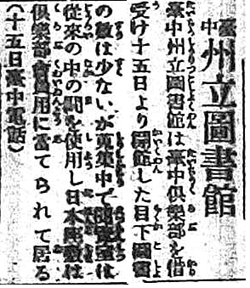 臺中
州立圖書館
臺中州立圖書館は臺中俱樂部を借
受け十五日より開館した目下圖書
の數は少ないが蒐集中で閲覽室は
從來の中の間を使用し日本間は
俱樂部會員用に當てられて居る
(十五日臺中電話)